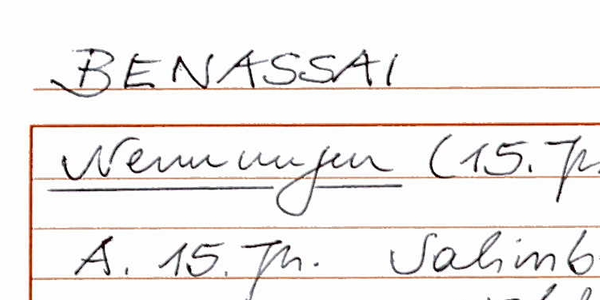 BENASSAI
Nennungen (15. Jh.
A. 15. Jh. Salimb